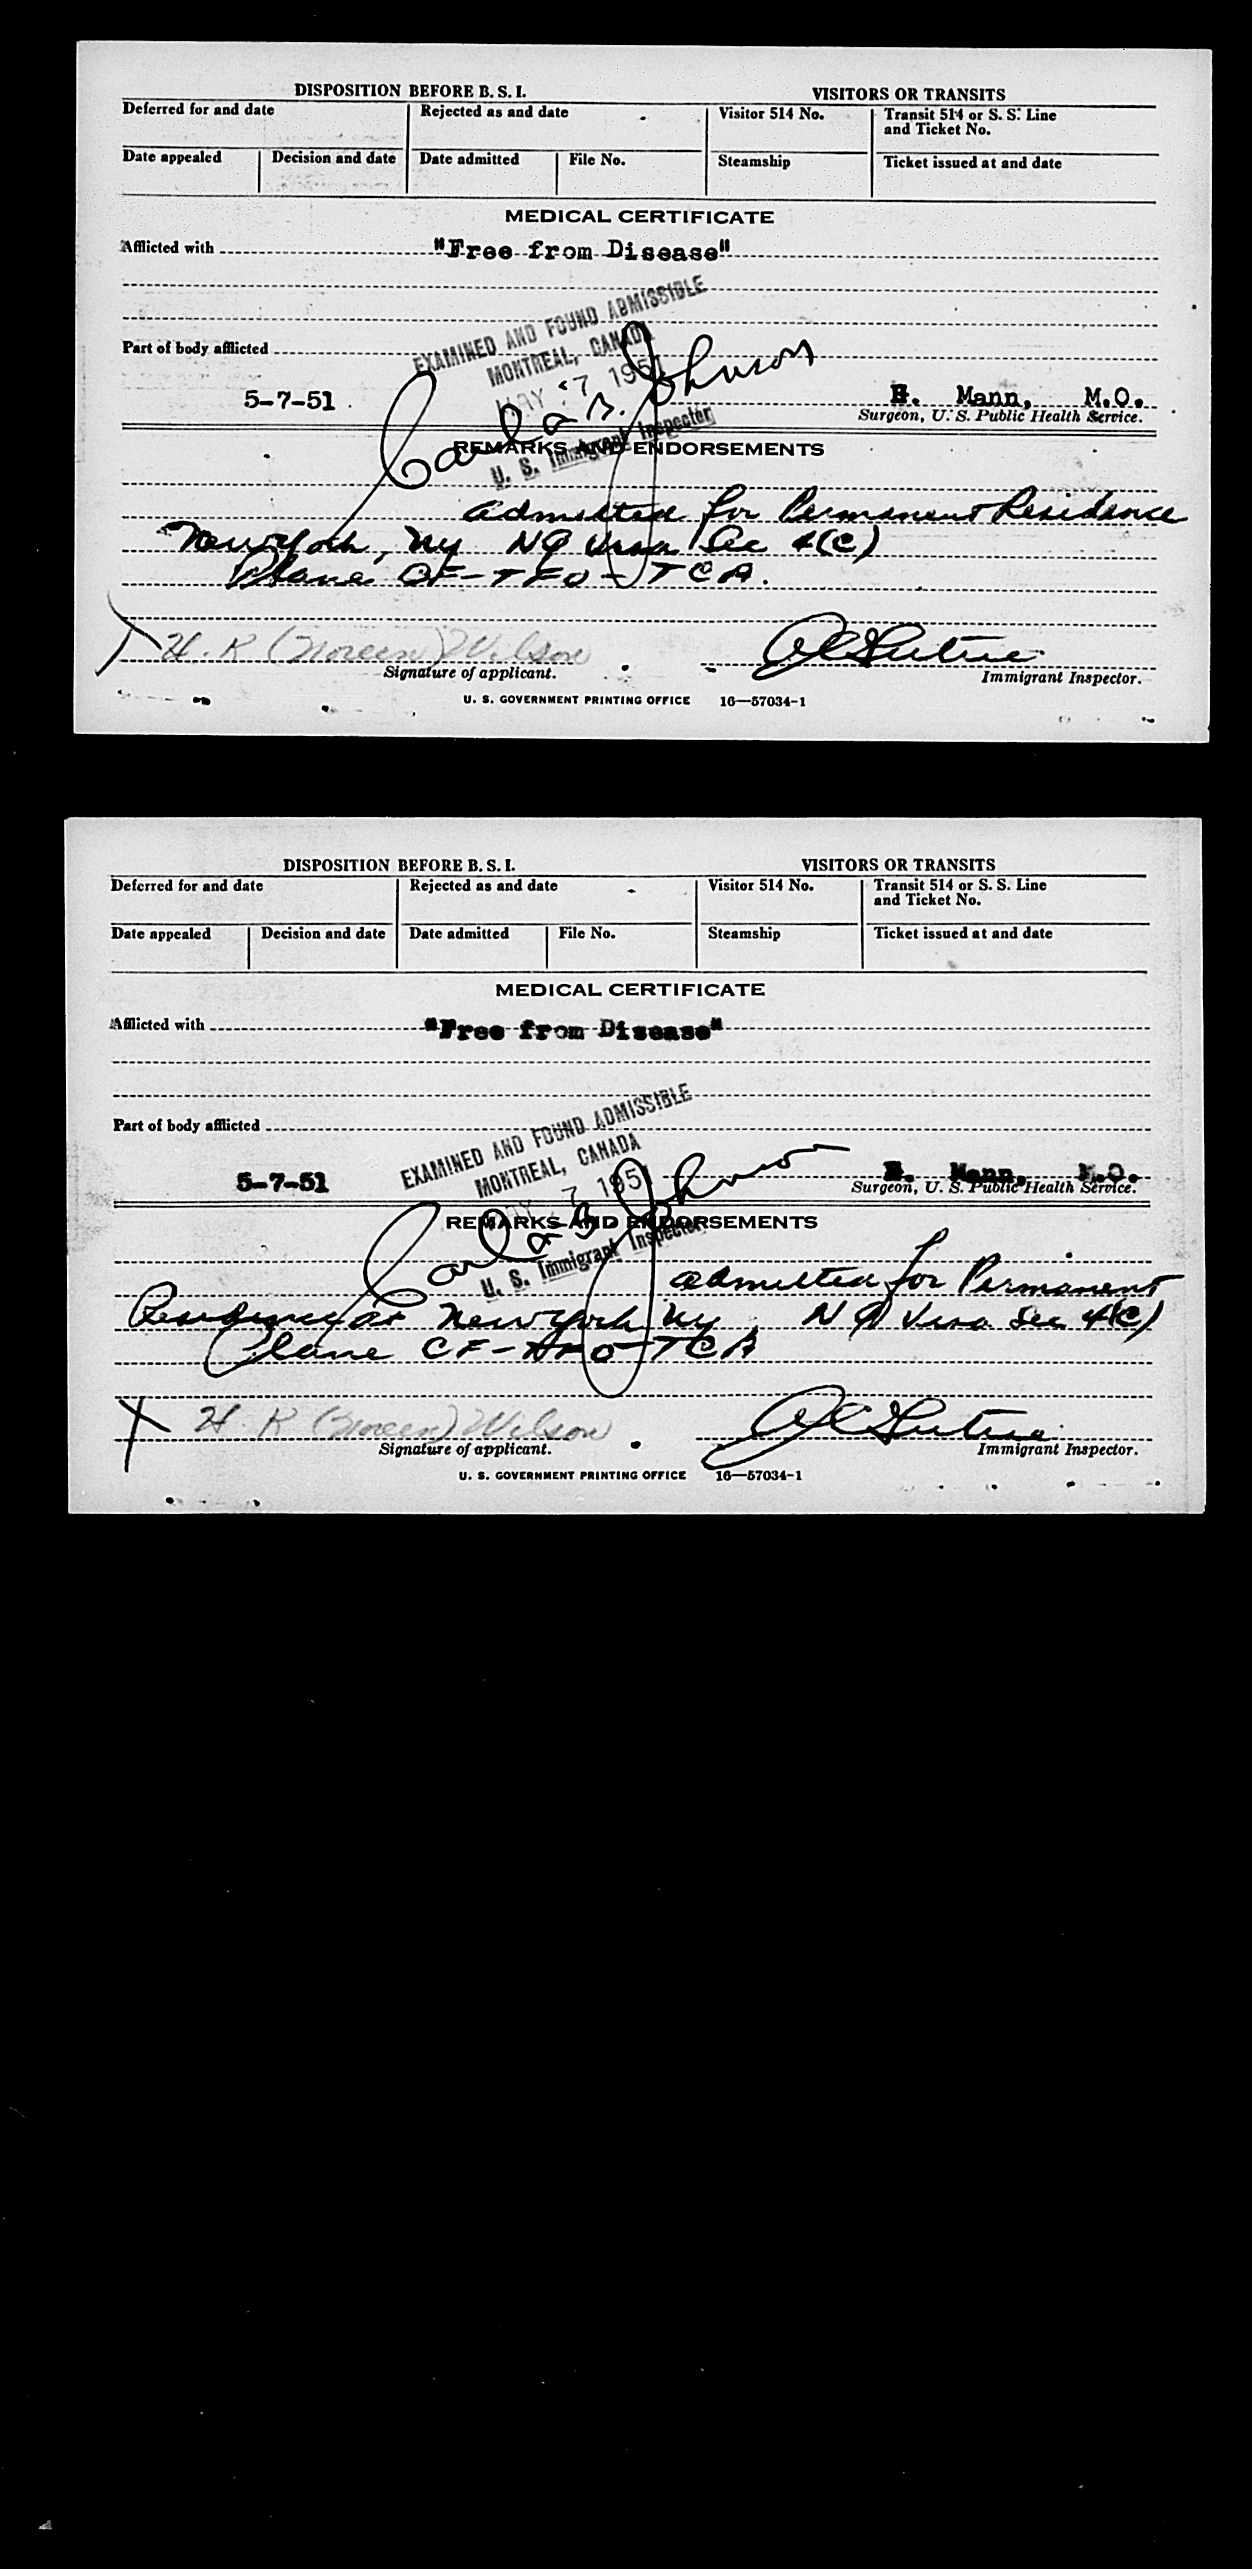 DISPOSITION BEFORE B. S. I.
VISITORS OR TRANSITS
Deferred for and date
Rejected as and date
Visitor 514 No.
Transit 514 or S. S. Line and Ticket No.
Date appealed
Decision and date
Date admitted
File No.
Steamship
Ticket issued at and date
MEDICAL CERTIFICATE
Afflicted with "Free from Disease"
Part of body afflicted
EXAMINED AND FOUND ADMISSIBLE
MONTREAL, CANADA
MAY 7 1951
Carl B. Johnson
U. S. Immigrant Inspector
5-7-51
Mann, M.O.
Surgeon, U. S. Public Health Service.
REMARKS AND ENDORSEMENTS
admitted for Permanent Residence
New York, Ny NQ Visa Sec 4(c)
Plane CF-TFO-TCA.
H. K (Noreen) Wilson
Signature of applicant.
Immigrant Inspector.
U. S. GOVERNMENT PRINTING OFFICE 16—57034-1
DISPOSITION BEFORE B. S. I.
VISITORS OR TRANSITS
Deferred for and date
Rejected as and date
Visitor 514 No.
Transit 514 or S. S. Line and Ticket No.
Date appealed
Decision and date
Date admitted
File No.
Steamship
Ticket issued at and date
MEDICAL CERTIFICATE
Afflicted with "Free from Disease"
Part of body afflicted
EXAMINED AND FOUND ADMISSIBLE
MONTREAL, CANADA
MAY 7 1951
Carl B Johnson
U. S. Immigrant Inspector
5-7-51
Mann, M.O.
Surgeon, U. S. Public Health Service.
REMARKS AND ENDORSEMENTS
admitted for Permanent
Residence at New York Ny NQ Visa Sec 4(c)
Plane CF-TFO-TCA
H. K (Noreen) Wilson
Signature of applicant.
Immigrant Inspector.
U. S. GOVERNMENT PRINTING OFFICE 16—57034-1